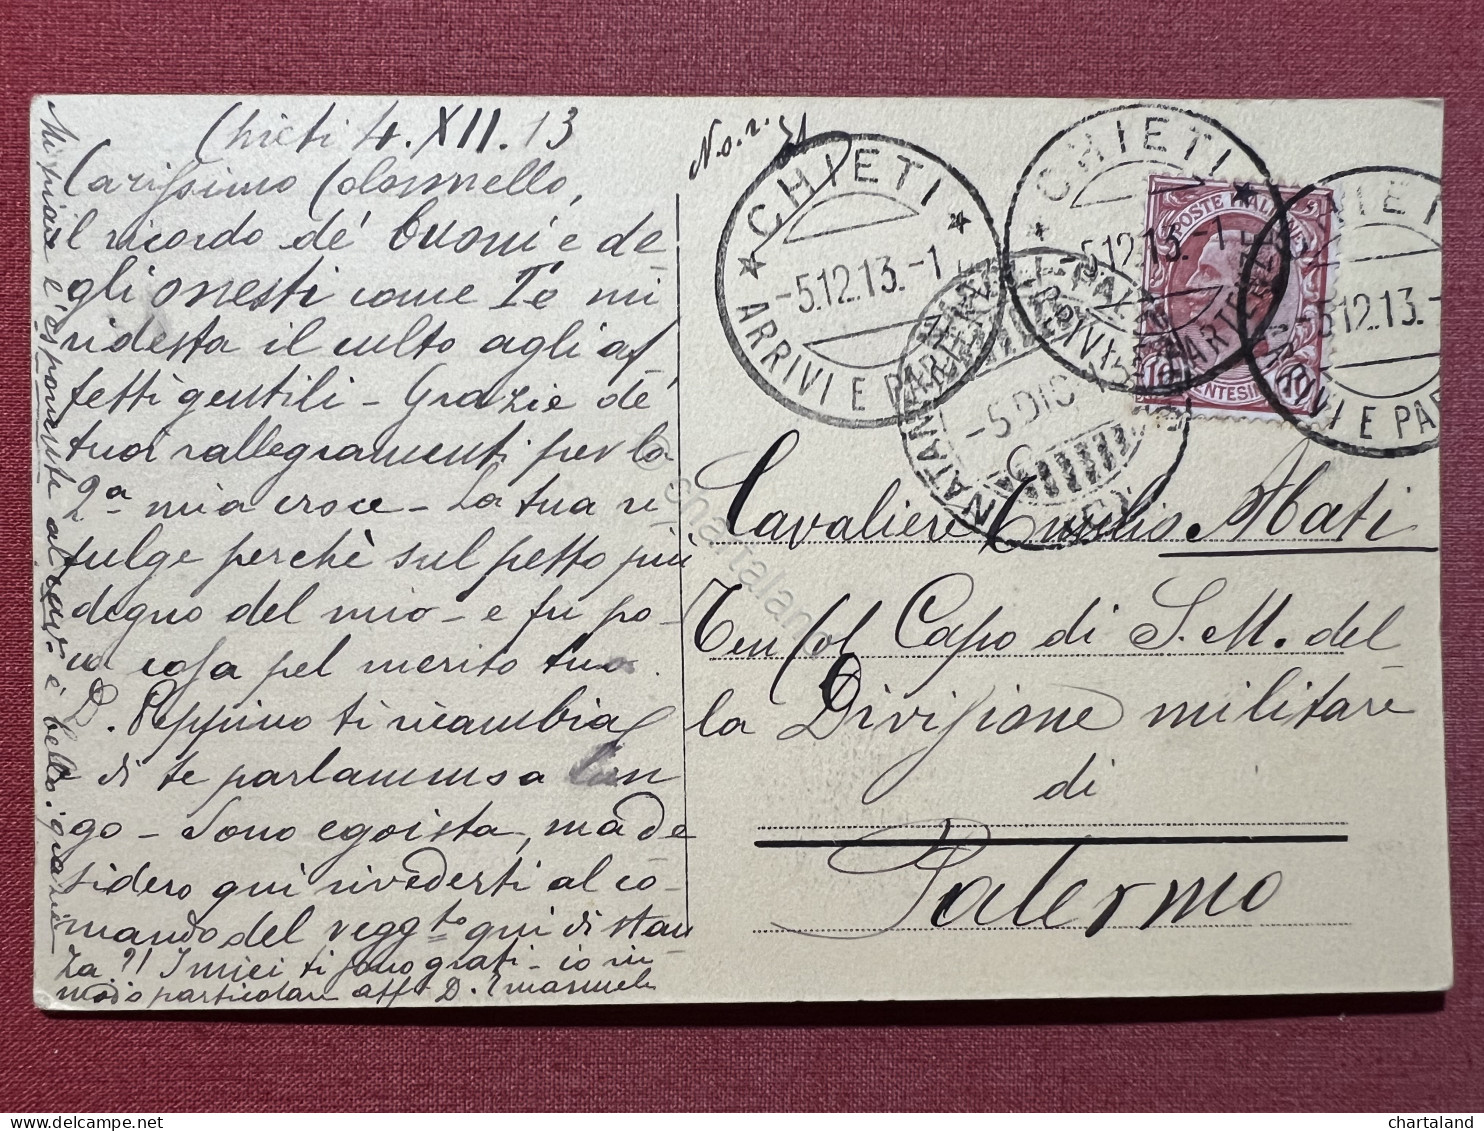 Chieti 4. XII. 13
Carissimo Colonnello,
il ricordo de' buoni e de-
gli onesti come Te mi
ridesta il culto agli af
fetti gentili - Grazie de'
tuoi rallegramenti per la
2a mia croce - La tua ri-
fulge perchè sul petto più
degno del mio - e fu po-
ca cosa pel merito tuo.
D. Peppino ti ricambia
di te parlammo a lun
go - Sono egoista, ma de
sidero qui rivederti al co-
mando del regg.to qui di stan
za?! I miei ti sono grati - io in
modo particolare aff. D. Emanuele
è bello. grazie
N. o. 2. 31
CHIETI
-5.12.13.-1
ARRIVI E PARTENZE
CHIETI
-5.12.13.-1
ARRIVI E PARTENZE
CHIETI
5.12.13.-
ARRIVI E PAR
-5 DIC 13
POSTE ITALIANE
10 CENTESIMI 10
Cavaliere Emilio Mati
Ten Col Capo di S. M. del-
la Divisione militare
di
Palermo
© chartaland
chartaland
© www.delcampe.net